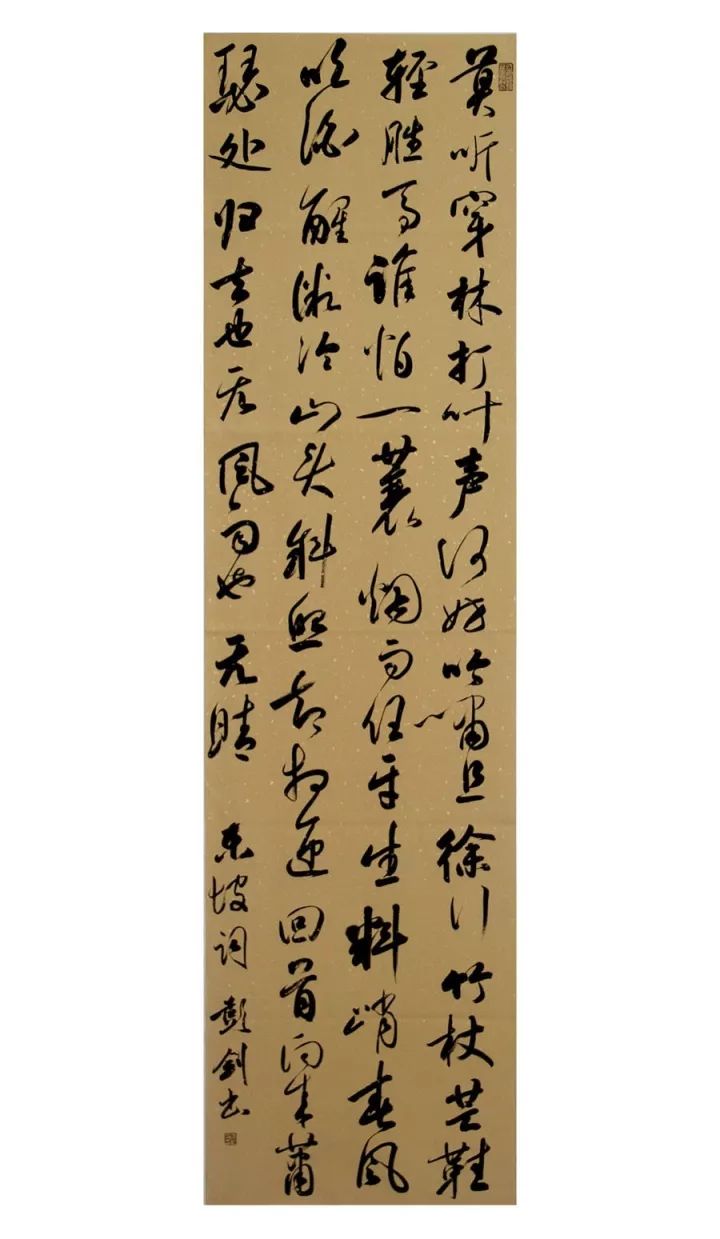 莫听穿林打叶声何妨吟啸且徐行竹杖芒鞋
輕胜马誰怕一蓑烟雨任平生料峭春风
吹酒醒微冷山头斜照却相迎回首向来萧
瑟处归去也无风雨也无晴 东坡词 彭剑书